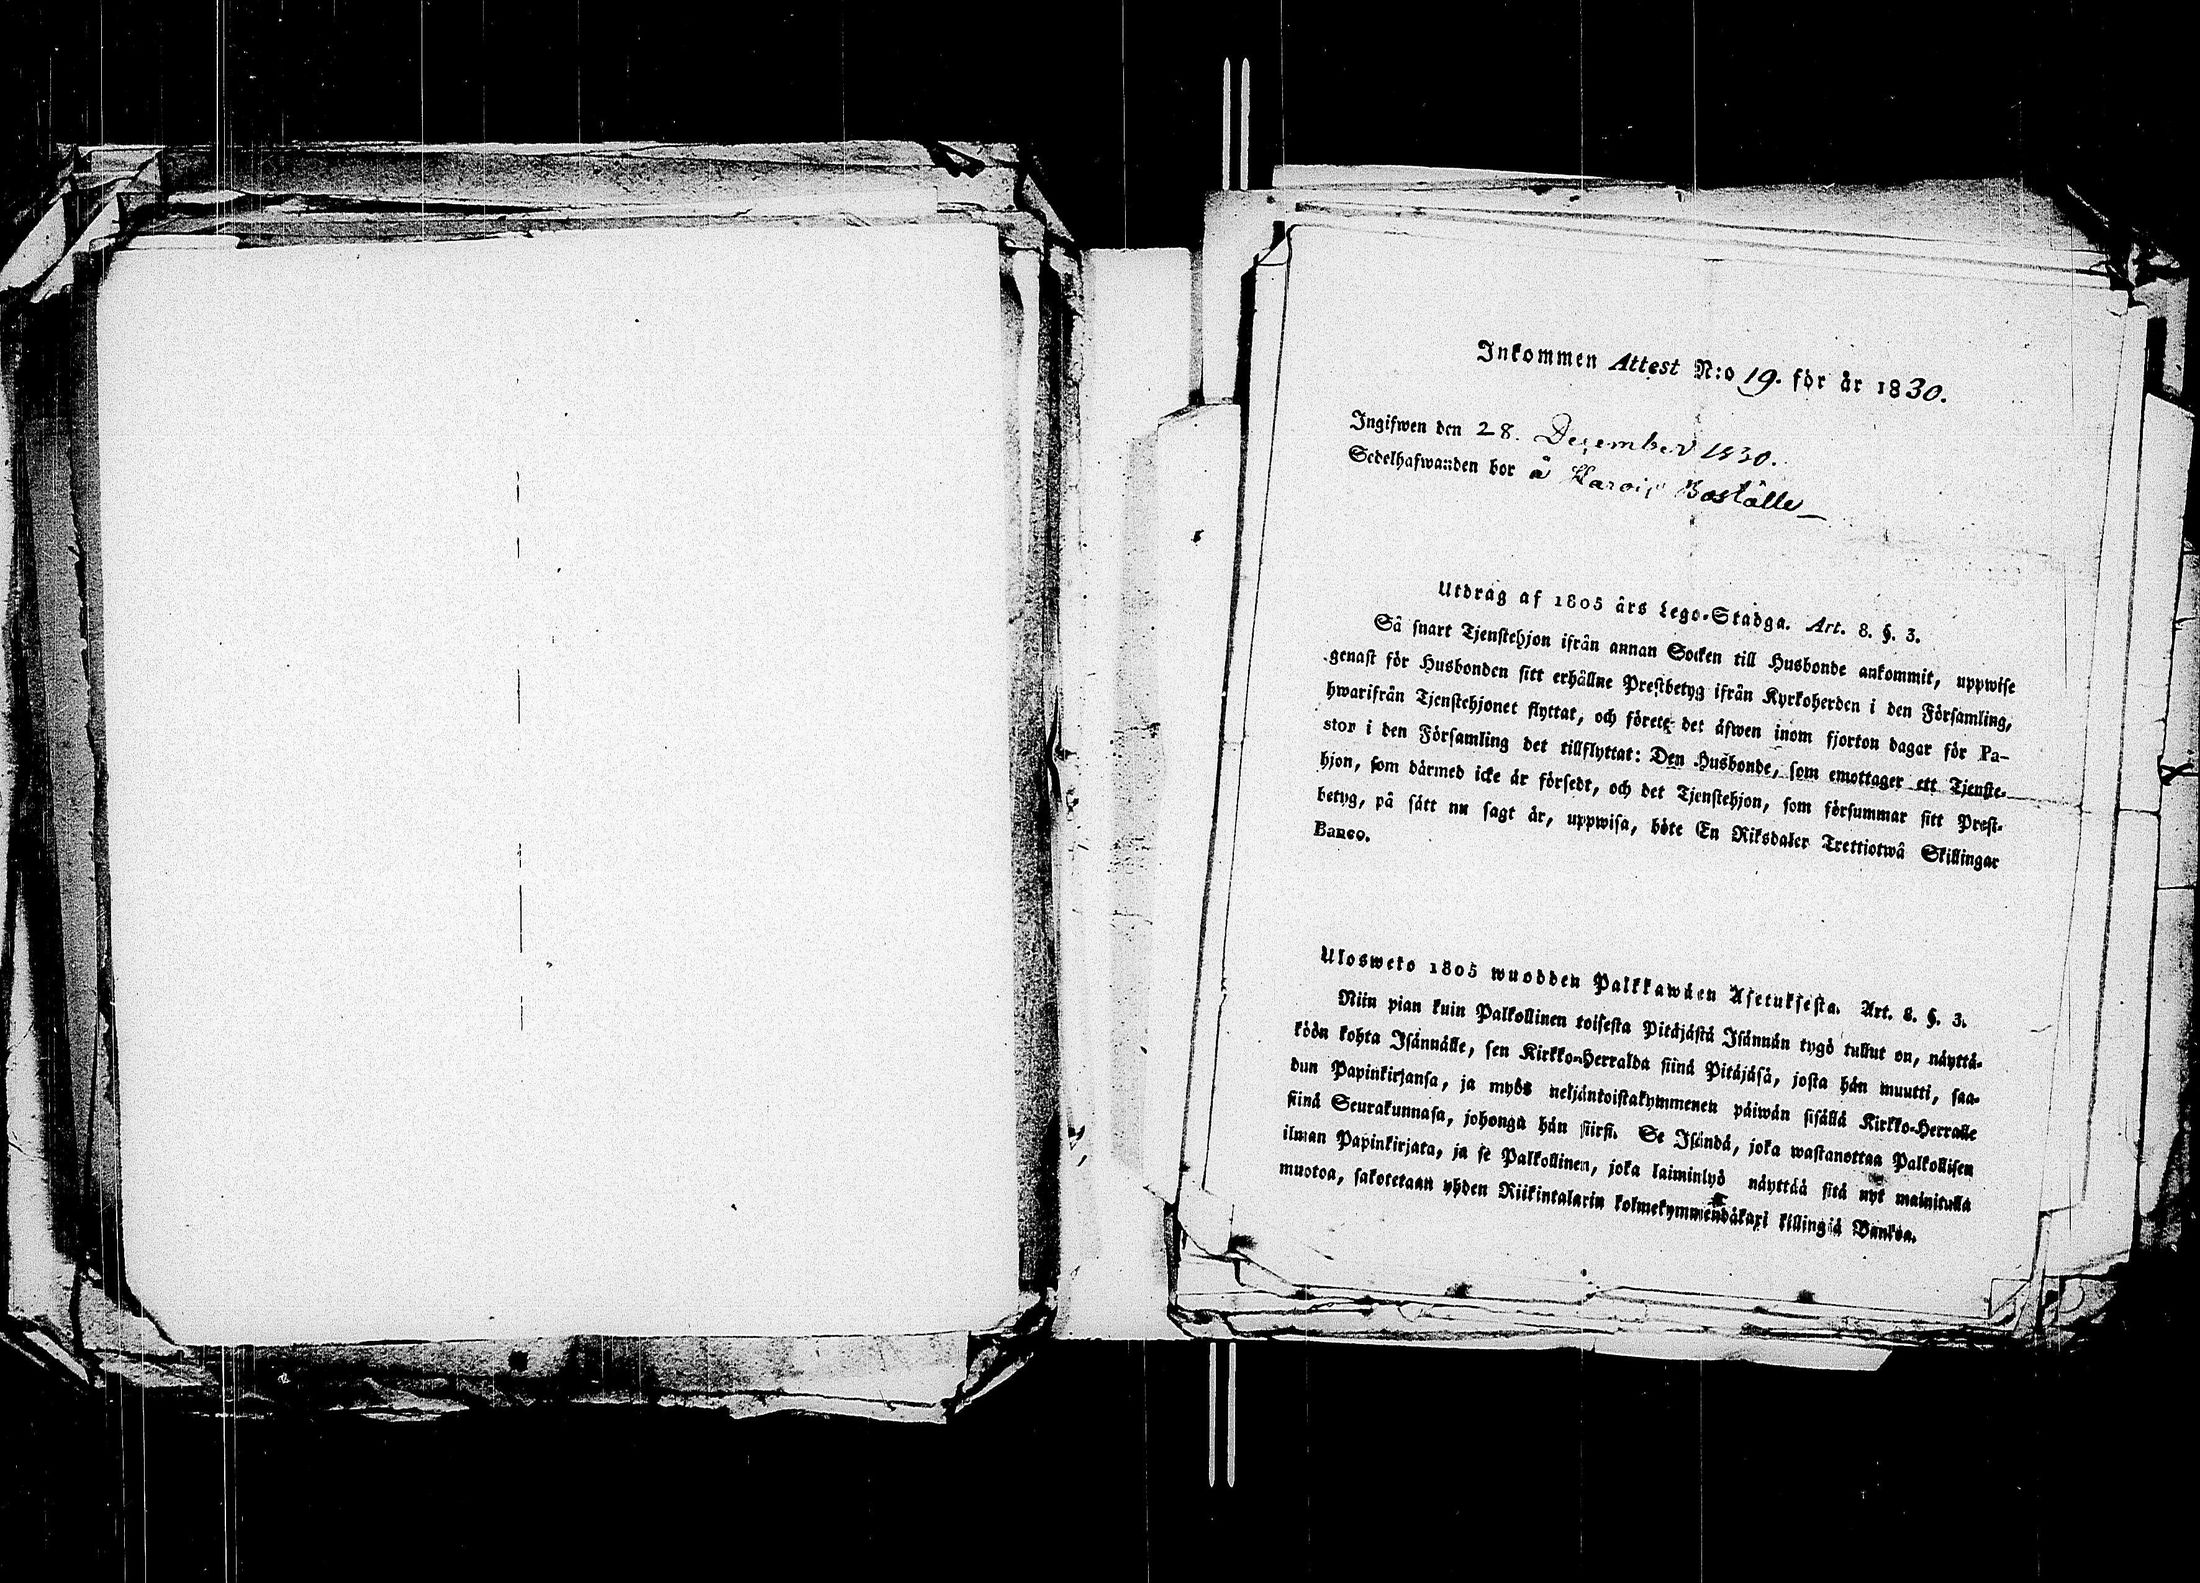 Inkommen Attest N:o 19. för år 1830.
Ingifwen den 28. December 1830.
Sedelhafwanden bor å Boställe
Utdrag af 1805 års Lego-Stadga. Art. 8. §. 3.
Så snart Tjenstehjon ifrån annan Socken till Husbonde ankommit, uppwise
genast för Husbonden sitt erhållne Prestbetyg ifrån Kyrkoherden i den Församling,
hwarifrån Tjenstehjonet flyttat, och förete det äfwen inom fjorton dagar för Pa-
stor i den Församling det tillflyttat: Den Husbonde, som emottager ett Tjenste-
hjon, som därmed icke är försedt, och det Tjenstehjon, som försummar sitt Prest-
betyg, på sätt nu sagt är, uppwisa, böte En Riksdaler Trettiotwå Skillingar
Banco.
Ulosweto 1805 wuodden Palkkawäen Asetuksesta. Art. 8. §. 3.
Niin pian kuin Palkollinen toisesta Pitäjästä Isännän tygö tullut on, näyttä-
köön kohta Isännälle, sen Kirkko-Herralda siinä Pitäjäsä, josta hän muutti, saa-
dun Papinkirjansa, ja myös neljäntoistakymmenen päiwän sisällä Kirkko-Herralle
siinä Seurakunnasa, johonga hän siirsi. Se Isändä, joka wastanottaa Palkollisen
ilman Papinkirjata, ja se Palkollinen, joka laiminlyö näyttää sitä nyt mainitulla
muotoa, sakotetaan yhden Riikintalarin kolmekymmendäkaxi killingiä Bankoa.